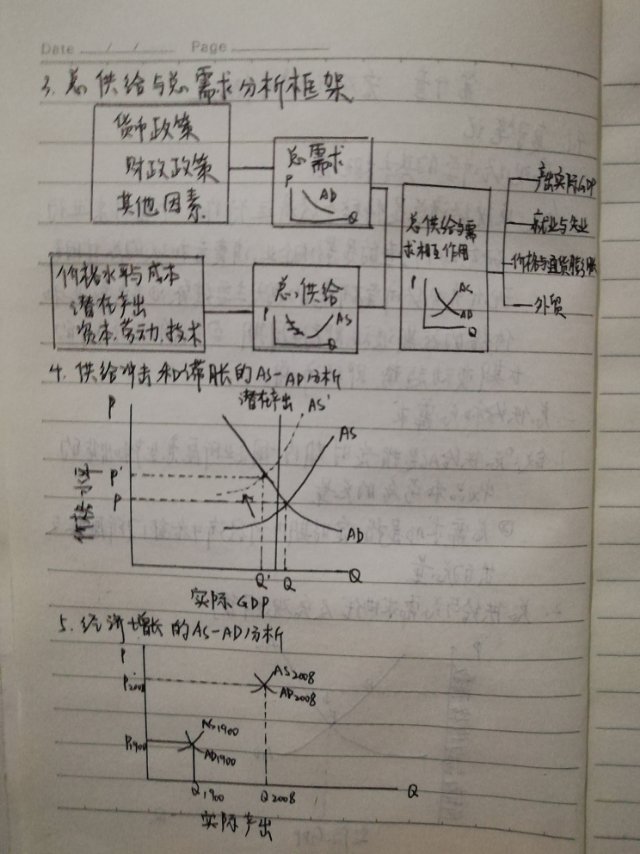 Date / / Page
3. 总供给与总需求分析框架
货币政策
财政政策
其他因素
总需求
P
AD
Q
价格水平与成本
潜在产出
资本、劳动、技术
总供给
P
AS
Q
总供给与需
求相互作用
P
AS
AD
Q
产出实际GDP
就业与失业
价格与通货膨胀
外贸
4. 供给冲击和滞胀的AS-AD分析
P
潜在产出
AS'
AS
P'
P
价格水平
AD
Q'
Q
Q
实际GDP
5. 经济增长的AS-AD分析
P
P2008
AS2008
AD2008
P1900
AS1900
AD1900
Q1900
Q2008
Q
实际产出